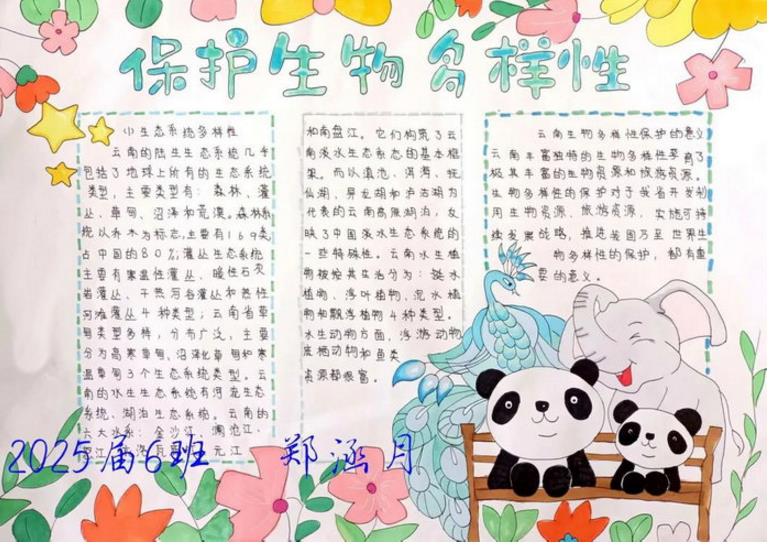 保护生物多样性
小生态系统多样性
云南的陆生生态系统几乎
包括了地球上所有的生态系统
类型，主要类型有：森林、灌
丛、草甸、沼泽和荒漠。森林系
统以乔木为标志,主要有169类
占中国的80%;灌丛生态系统
主要有寒温性灌丛、暖性石灰
岩灌丛、干热河谷灌丛和热性
河滩灌丛4种类型；云南省草
甸类型多样，分布广泛，主要
分为高寒草甸、沼泽化草甸和寒
温草甸3个生态系统类型。云
南的水生生态系统有河流生态
系统、湖泊生态系统。云南的
六大水系：金沙江、澜沧江、
元江
和南盘江。它们构筑了云
南淡水生态系态的基本框
架。而以滇池、洱海、抚
仙湖、异龙湖和泸沽湖为
代表的云南高原湖泊，反
映了中国淡水生态系统的
一些特殊性。云南水生植
物被按其生活分为：挺水
植物、浮叶植物、沉水植
物和飘浮植物4种类型。
水生动物方面，浮游动物
底栖动物和鱼类
资源都很富。
云南生物多样性保护的意义
云南丰富独特的生物多样性孕育了
极其丰富的生物资源和旅游资源。
生物多样性的保护对于我省开发利
用生物资源、旅游资源，实施可持
续发展战略，推进我国乃至世界生
物多样性的保护，都有重
要的意义。
2025届6班 郑涵月